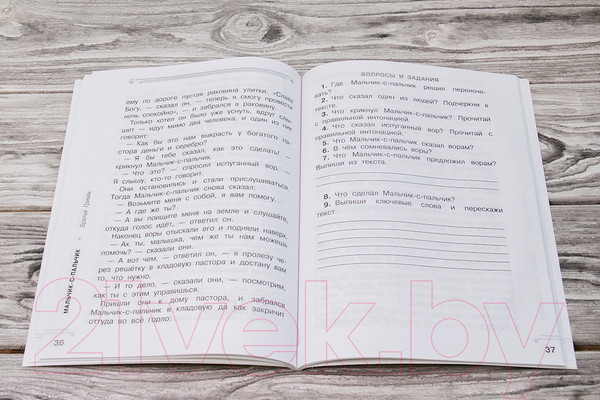 ему по дороге пустая раковина улитки. «Слава
Богу, — сказал он, — теперь я смогу провести
ночь спокойно», — и забрался в раковину.
Только хотел он было уже уснуть, вдруг слы-
шит — идут мимо два человека, и один из них
говорит:
— Как бы это нам выкрасть у богатого па-
стора деньги и серебро?
— Я бы тебе сказал, как это сделать! —
крикнул Мальчик-с-пальчик.
— Что это? — спросил испуганный вор. —
Я слышу, кто-то говорит.
Они остановились и стали прислушиваться.
Тогда Мальчик-с-пальчик снова сказал:
— Возьмите меня с собой, я вам помогу.
— А где же ты?
— А вы поищите меня на земле и слушайте,
откуда голос идёт, — ответил он.
Наконец воры отыскали его и подняли наверх.
— Ах ты, малышка, чем же ты нам можешь
помочь? — сказали они.
— А вот чем, — ответил он, — я пролезу че-
рез решётку в кладовую пастора и достану вам
то, что нужно.
— И то дело, — сказали они, — посмотрим,
как ты с этим управишься.
Пришли они к дому пастора, и забрался
Мальчик-с-пальчик в кладовую да как закричит
оттуда во всё горло:
МАЛЬЧИК-С-ПАЛЬЧИК • Братья Гримм
36
ВОПРОСЫ И ЗАДАНИЯ
1. Где Мальчик-с-пальчик решил переноче-
вать?
2. Что сказал один из людей? Подчеркни в
тексте.
3. Что крикнул Мальчик-с-пальчик? Прочитай
с правильной интонацией.
4. Что сказал испуганный вор? Прочитай с
правильной интонацией.
5. Что Мальчик-с-пальчик сказал ворам?
6. В чём сомневались воры?
7. Что Мальчик-с-пальчик предложил ворам?
Выпиши из текста.
8. Что сделал Мальчик-с-пальчик?
9. Выпиши ключевые слова и перескажи
текст.
37
21vek.by